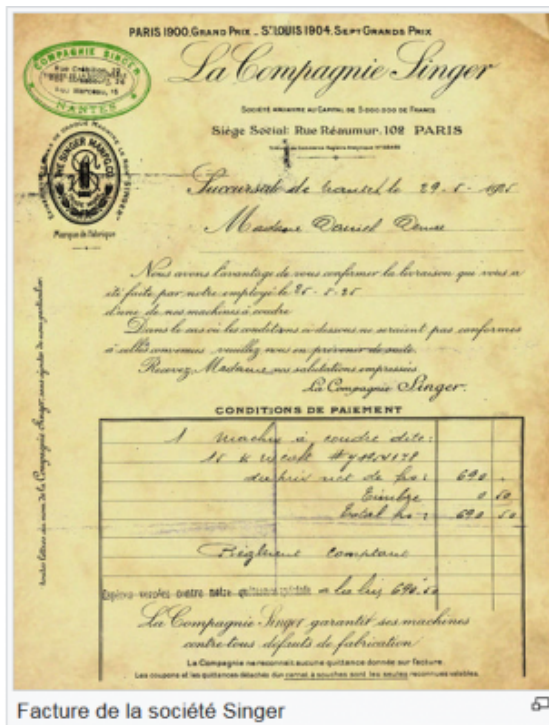 PARIS 1900, GRAND PRIX _ St LOUIS 1904, SEPT GRANDS PRIX
COMPAGNIE SINGER
NANTES
La Compagnie Singer
SOCIÉTÉ ANONYME AU CAPITAL DE 3.000.000 DE FRANCS
Siège Social: Rue Réaumur, 102 PARIS
THE SINGER MANFG. CO.
TRADE MARK
Marque de Fabrique
Succursale de Nantes le 29-5-1925
Madame Daniel
Nous avons l'avantage de vous confirmer la livraison qui vous a
été faite par notre employé le 25-5-25
d'une de nos machines à coudre
Dans le cas où les conditions ci-dessous ne seraient pas conformes
à celles convenues veuillez nous en prévenir de suite.
Recevez, Madame, nos salutations empressées
La Compagnie Singer.
CONDITIONS DE PAIEMENT
1 machine à coudre dite:
15 K
du prix net de frs: 690 .
Timbre 0 50
Total frs: 690 50
Règlement comptant
Espèces versées contre notre quittance 690.50
La Compagnie Singer garantit ses machines
contre tous défauts de fabrication
La Compagnie ne reconnaît aucune quittance donnée sur facture.
Les coupons et les quittances détachés d'un carnet à souches sont les seules reconnues valables.
Facture de la société Singer